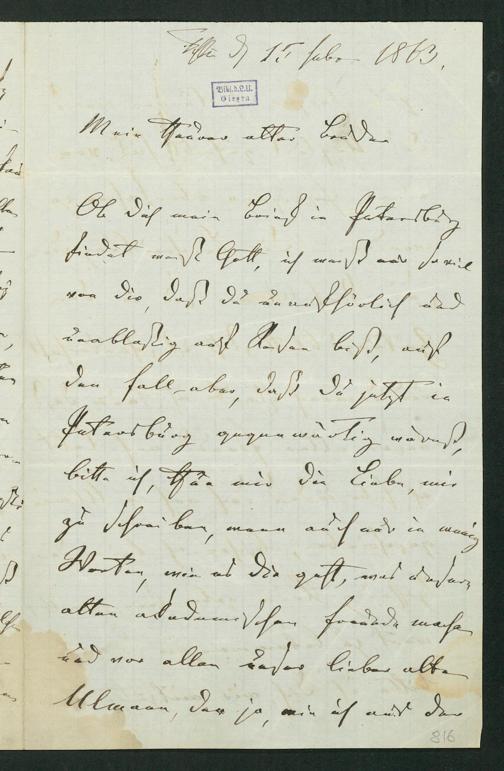 d 15 Febr 1863.
Bibl. d. L. U.
Giessen
Mein theurer alter Bruder
Ob Dich mein Brief in Petersburg
findet weiß Gott, ich weiß nur so viel
von Dir, daß Du unaufhörlich und
unabläßig auf Reisen bist, auf
den Fall aber, daß Du jetzt in
Petersburg gegenwärtig wärest,
bitte ich, thue mir die Liebe, mir
zu schreiben, wenn auch nur in wenig
Worten, wie es Dir geht, was unsere
alten akademischen Freunde machen
und vor allen unser lieber alter
Ulmann, der ja, wie ich aus der
816